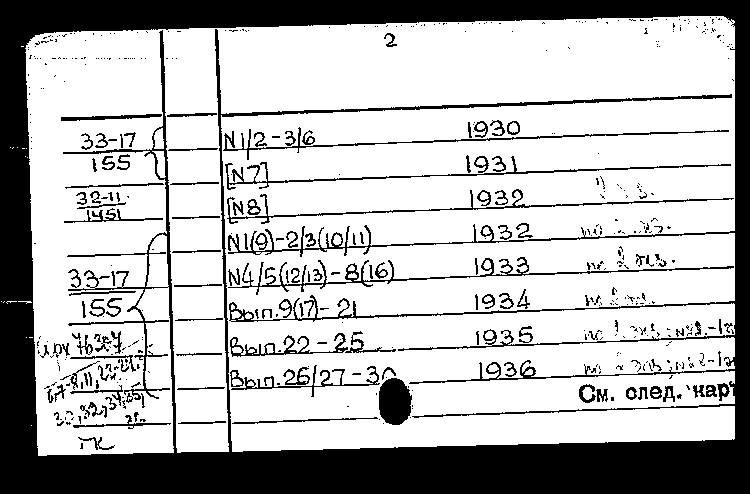 2
33-17 N1/2-3/6 1930
155 [N7] 1931
32-11 [N8] 1932 2 экз.
1451
N1(9)-2/3(10/11) 1932 по 2 экз.
33-17 N4/5(12/13)-8(16) 1933 по 2 экз.
155 Вып.9(17)-21 1934 по 2 экз.
Вып.22-25 1935 по 2 экз; №22-1
Вып.26/27-30 1936 по 2 экз;
См. след. карт